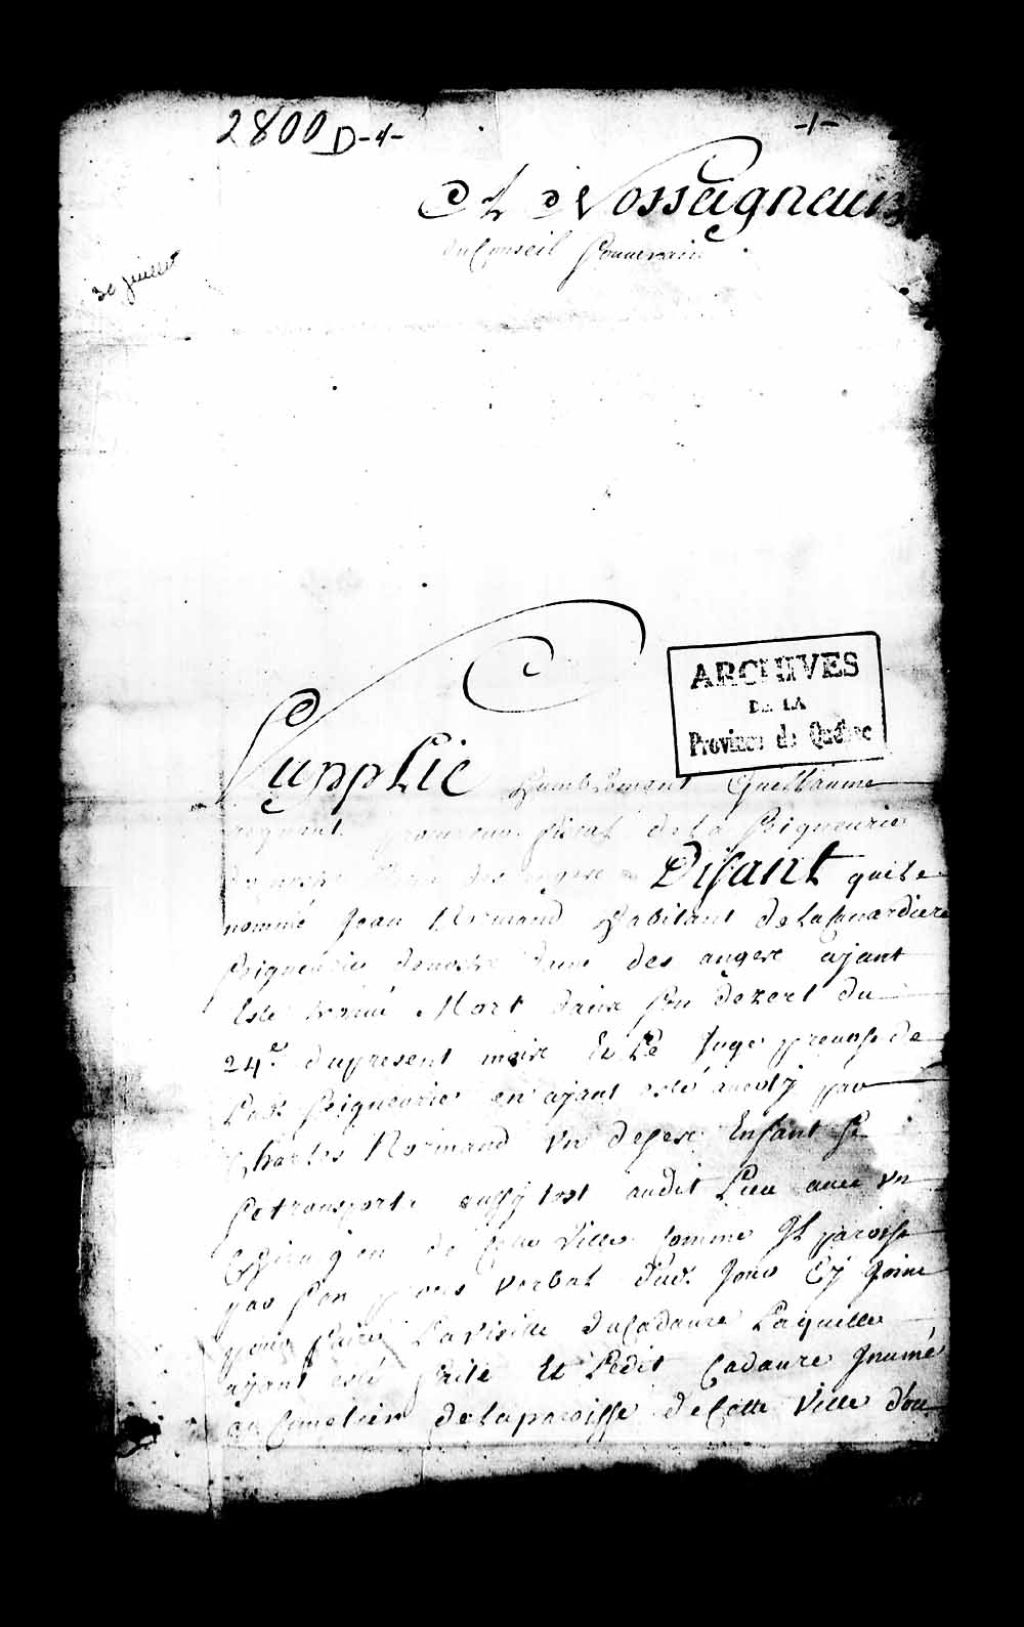 2800 D-4-
-1-
A Nosseigneurs
du Conseil Souverain
30 juillet
ARCHIVES
DE LA
Province de Québec
Supplie humblement Guillaume
procureur fiscal de la Seigneurie
de nostre Dame des anges Disant que le
nommé Jean Normand habitant de la Canardiere
Seigneurie de nostre dame des anges ayant
esté trouvé Mort dans son dezert du
24e. du present mois Et Le Juge prevost de
Lad. Seigneurie en ayant esté averty par
Charles Normand un de ses Enfant Se
Se transporta aussy tost audit Lieu avec un
Chirurgien de Cette Ville Comme Il paroist
par son proces verbal dud. Jour Cy Joint
pour faire La visitte du Cadavre Laquelle
ayant esté faite Et Ledit Cadavre Inumé
au Cimetier de la paroisse de Cette Ville d'ou